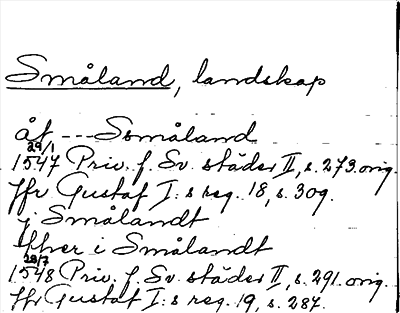 Småland, landskap
åt --- Ssmåland
29/1
1547 Priv. f. Sv. städer II, s. 273. orig.
Jfr Gustaf I:s reg. 18, s. 309.
j Smålandt
ffver i Smålandt
28/7
1548 Priv. f. Sv. städer II, s. 291. orig.
Jfr Gustaf I:s reg. 19, s. 287.